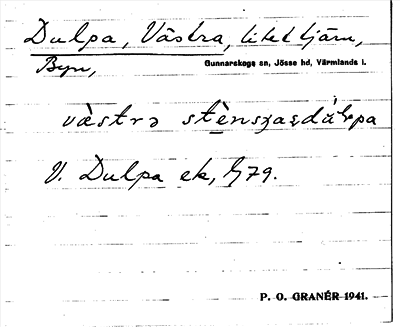 Dulpa, Västra, litet tjärn,
Byn, Gunnarskogs sn, Jösse hd, Värmlands l.
västrə
V. Dulpa ek, 179.
P. O. GRANÉR 1941.